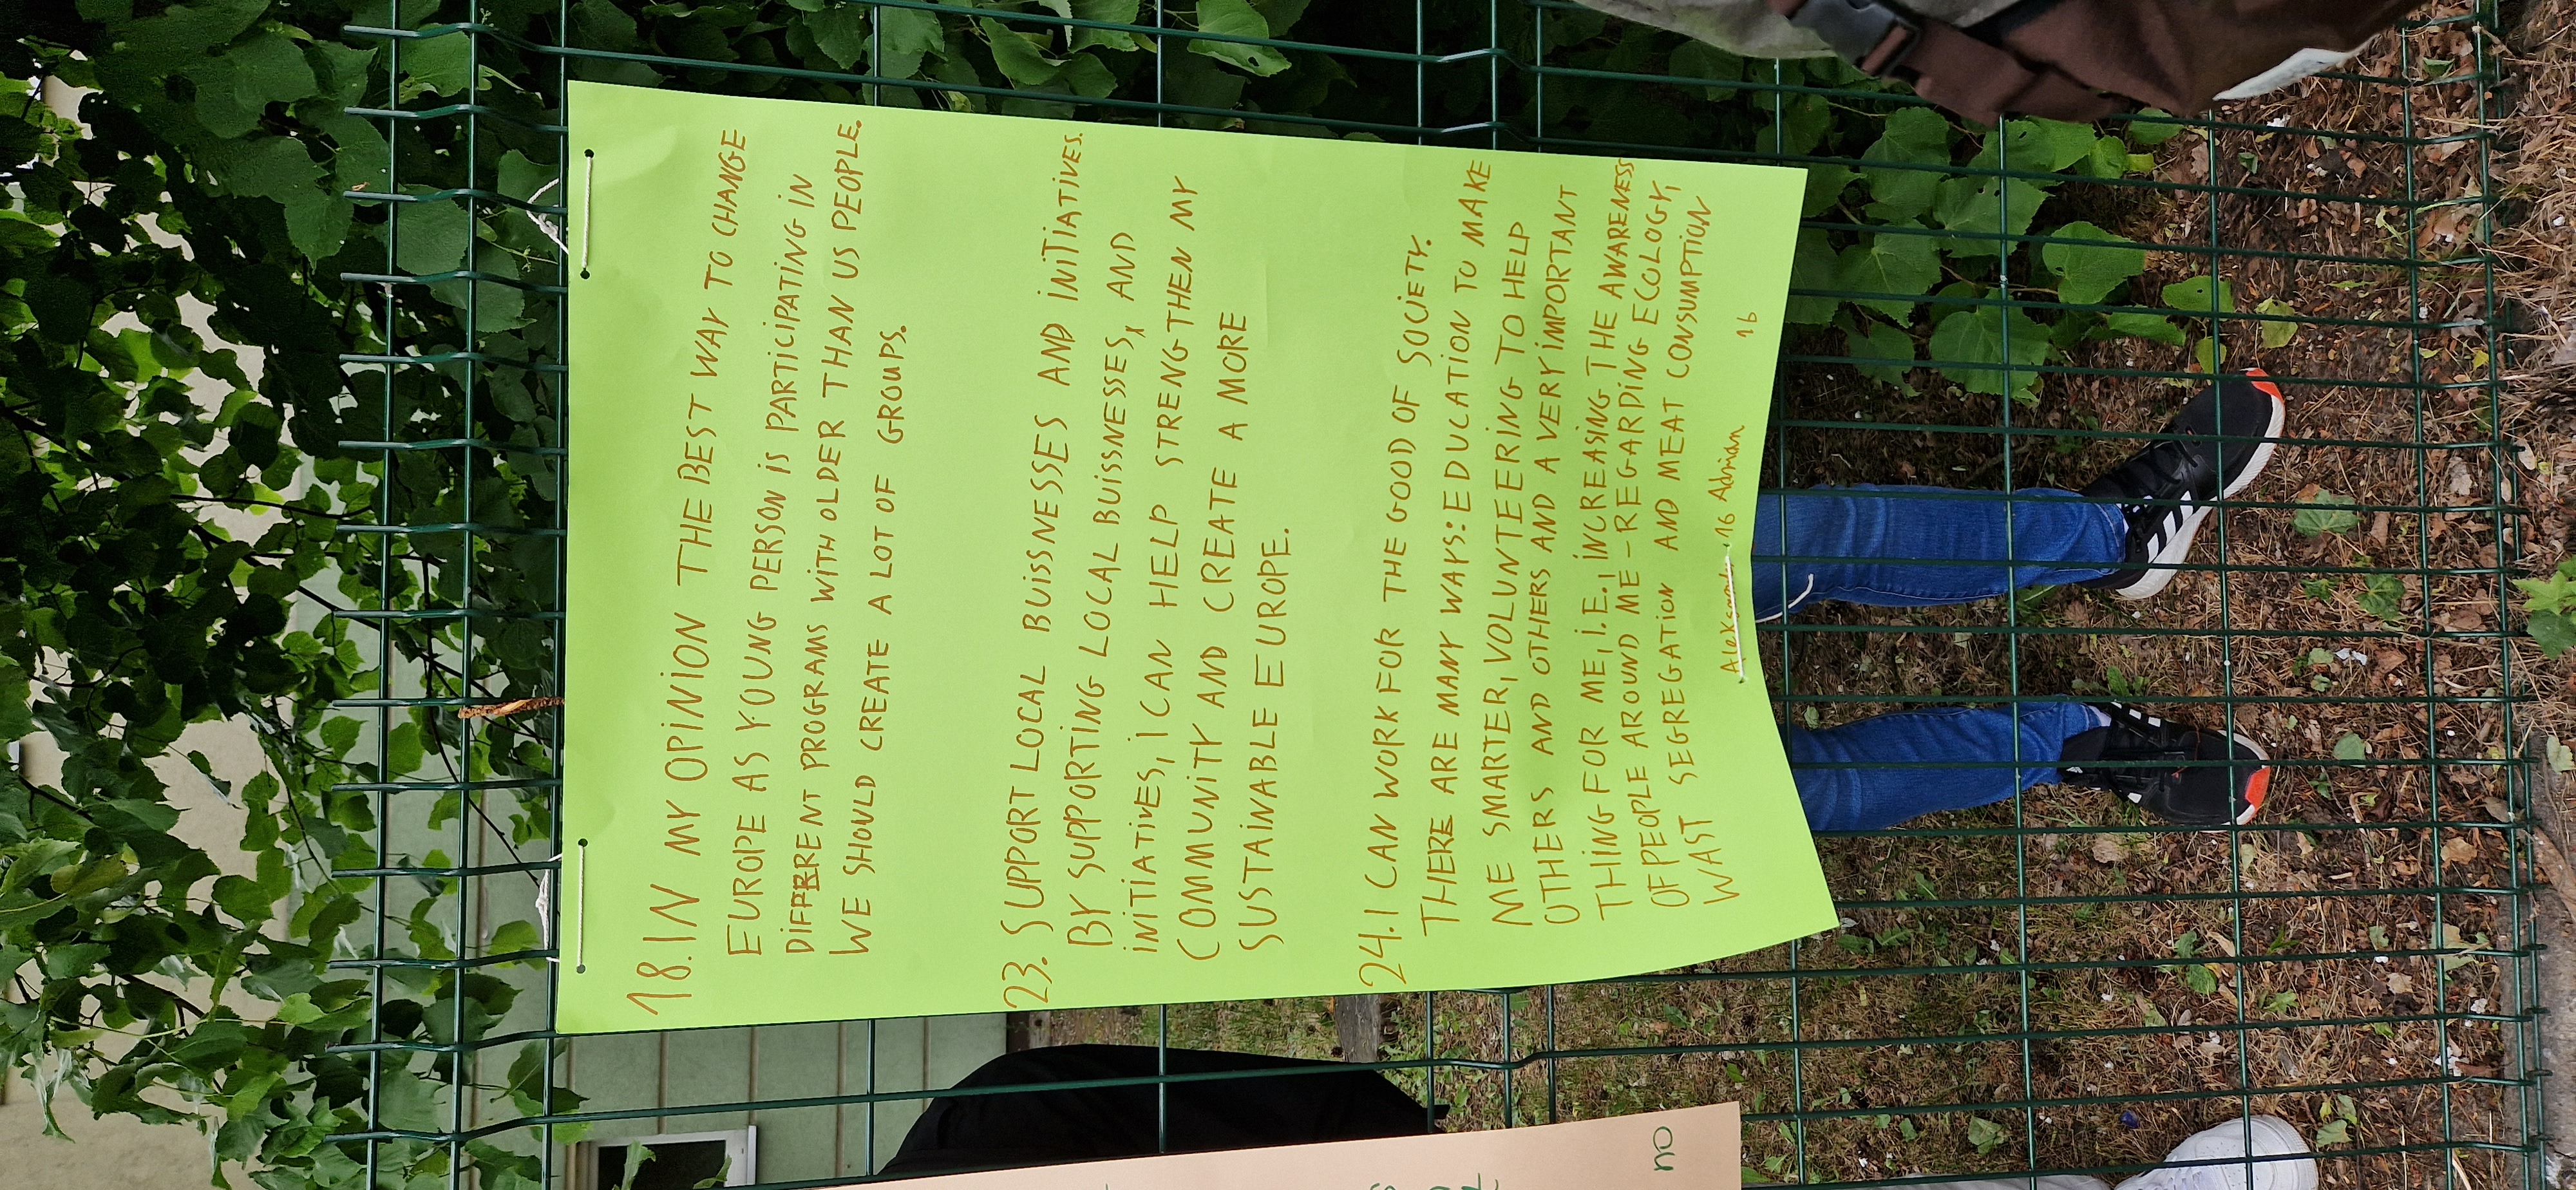 18. IN MY OPINION THE BEST WAY TO CHANGE
EUROPE AS YOUNG PERSON IS PARTICIPATING IN
DIFFERENT PROGRAMS WITH OLDER THAN US PEOPLE.
WE SHOULD CREATE A LOT OF GROUPS.
23. SUPPORT LOCAL BUISSNESSES AND INITIATIVES.
BY SUPPORTING LOCAL BUISSNESSES, AND
INITIATIVES, I CAN HELP STRENGTHEN MY
COMMUNITY AND CREATE A MORE
SUSTAINABLE EUROPE.
24. I CAN WORK FOR THE GOOD OF SOCIETY.
THERE ARE MANY WAYS: EDUCATION TO MAKE
ME SMARTER, VOLUNTEERING TO HELP
OTHERS AND OTHERS AND A VERY IMPORTANT
THING FOR ME, I.E., INCREASING THE AWARENESS
OF PEOPLE AROUND ME - REGARDING ECOLOGY,
WAST SEGREGATION AND MEAT CONSUMPTION
16 Adrian 16
no